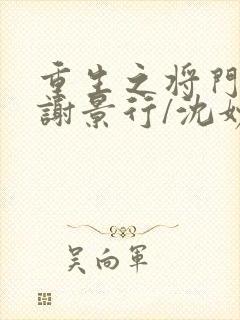 重生之将門
謝景行/沈妙
吴向軍